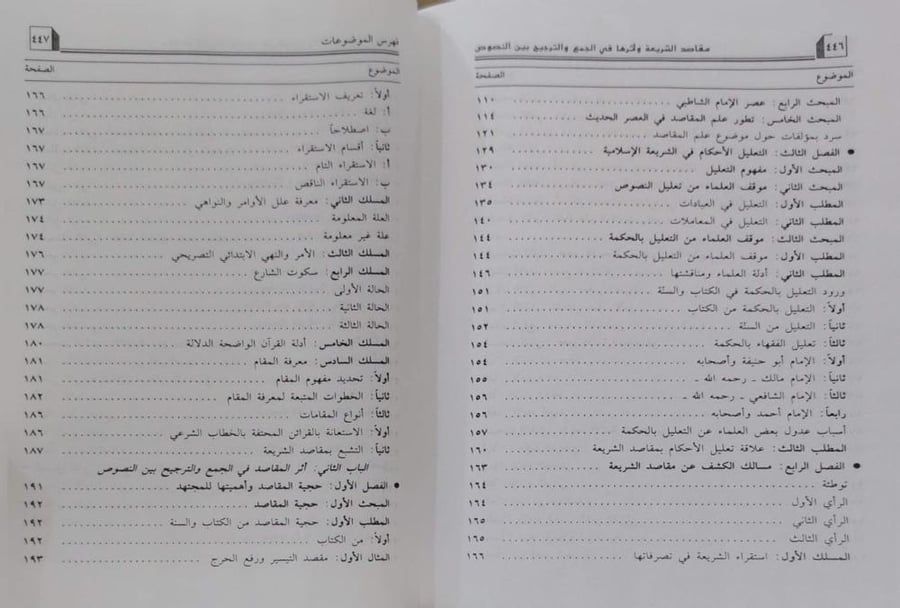 ٤٤٦ مقاصد الشريعة وأثرها في الجمع والترجيح بين النصوص
الموضوع الصفحة
المبحث الرابع: عصر الإمام الشاطبي ١١٠
المبحث الخامس: تطور علم المقاصد في العصر الحديث ١١٤
سرد بمؤلفات حول موضوع علم المقاصد ١٢١
● الفصل الثالث: التعليل الأحكام في الشريعة الإسلامية ١٢٩
المبحث الأول: مفهوم التعليل ١٣٠
المبحث الثاني: موقف العلماء من تعليل النصوص ١٣٤
المطلب الأول: التعليل في العبادات ١٣٥
المطلب الثاني: التعليل في المعاملات ١٤٠
المبحث الثالث: موقف العلماء من التعليل بالحكمة ١٤٤
المطلب الأول: موقف العلماء من التعليل بالحكمة ١٤٤
المطلب الثاني: أدلة العلماء ومناقشتها ١٤٦
ورود التعليل بالحكمة في الكتاب والسنّة ١٥١
أولاً: التعليل بالحكمة من الكتاب ١٥١
ثانياً: التعليل من السنّة ١٥٢
ثالثاً: تعليل الفقهاء بالحكمة ١٥٤
أولاً: الإمام أبو حنيفة وأصحابه ١٥٤
ثانياً: الإمام مالك - رحمه الله - ١٥٥
ثالثاً: الإمام الشافعي - رحمه الله - ١٥٦
رابعاً: الإمام أحمد وأصحابه ١٥٦
أسباب عدول بعض العلماء عن التعليل بالحكمة ١٥٧
المطلب الثالث: علاقة تعليل الأحكام بمقاصد الشريعة ١٦٠
● الفصل الرابع: مسالك الكشف عن مقاصد الشريعة ١٦٣
توطئة ١٦٤
الرأي الأول ١٦٤
الرأي الثاني ١٦٥
الرأي الثالث ١٦٥
المسلك الأول: استقراء الشريعة في تصرفاتها ١٦٦
فهرس الموضوعات ٤٤٧
الموضوع الصفحة
أولاً: تعريف الاستقراء ١٦٦
أ: لغة ١٦٦
ب: اصطلاحاً ١٦٧
ثانياً: أقسام الاستقراء ١٦٧
أ: الاستقراء التام ١٦٧
ب: الاستقراء الناقص ١٦٧
المسلك الثاني: معرفة علل الأوامر والنواهي ١٧٣
العلة المعلومة ١٧٤
علة غير معلومة ١٧٤
المسلك الثالث: الأمر والنهي الابتدائي التصريحي ١٧٦
المسلك الرابع: سكوت الشارع ١٧٧
الحالة الأولى ١٧٧
الحالة الثانية ١٧٨
الحالة الثالثة ١٧٨
المسلك الخامس: أدلة القرآن الواضحة الدلالة ١٨٠
المسلك السادس: معرفة المقام ١٨١
أولاً: تحديد مفهوم المقام ١٨١
ثانياً: الخطوات المتبعة لمعرفة المقام ١٨٢
ثالثاً: أنواع المقامات ١٨٦
أولاً: الاستعانة بالقرائن المحتفة بالخطاب الشرعي ١٨٦
ثانياً: التشبع بمقاصد الشريعة ١٨٧
الباب الثاني: أثر المقاصد في الجمع والترجيح بين النصوص
● الفصل الأول: حجية المقاصد وأهميتها للمجتهد ١٩١
المبحث الأول: حجية المقاصد ١٩٢
المطلب الأول: حجية المقاصد من الكتاب والسنة ١٩٢
أولاً: من الكتاب ١٩٢
المثال الأول: مقصد التيسير ورفع الحرج ١٩٣